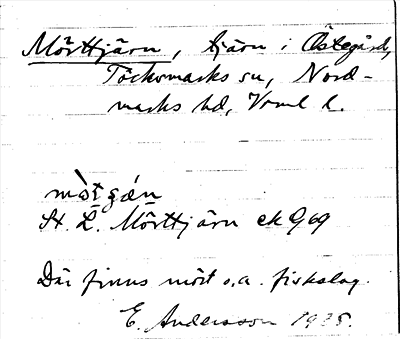 Mörttjärn, tjärn i Östegård,
Töcksmarks sn, Nord-
marks hd, Vrml l.
mòt̯ʂæ̀n
St. L. Mörttjärn ek 969
Där finns mört o.a. fiskslag.
E. Andersson 1935.